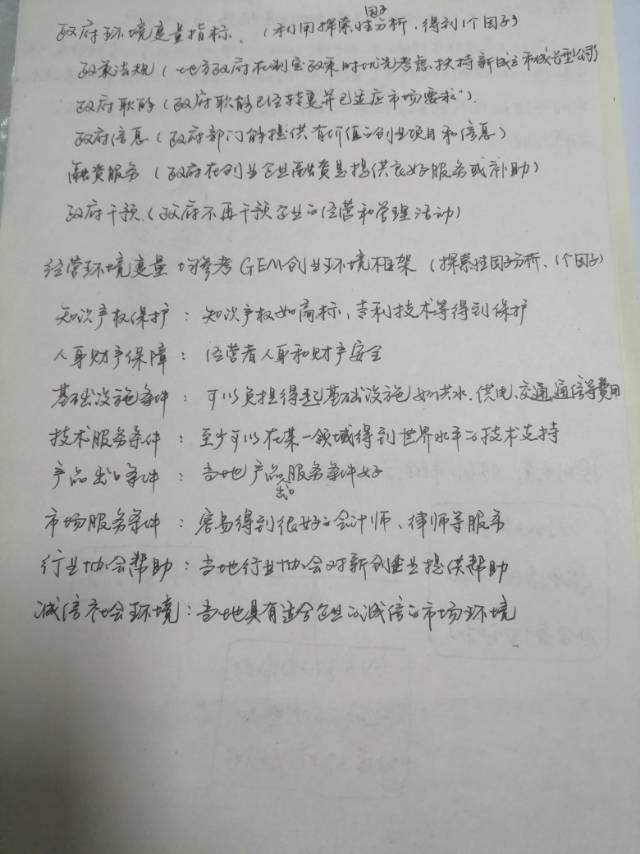 政府环境变量指标.（利用探索性因子分析,得到1个因子）
政策法规（地方政府在制定政策时优先考虑扶持新成立和成长型公司）
政府职能（政府职能已经转变并已适应市场要求）.
政府信息（政府部门能提供有价值的创业项目和信息）
融资服务（政府在创业企业融资上提供良好服务或补助）
政府干预.（政府不再干预企业的经营和管理活动）
经营环境变量 均参考GEM创业环境框架（探索性因子分析、1个因子）
知识产权保护：知识产权如商标、专利技术等得到保护
人身财产保障：经营者人身和财产安全
基础设施条件：可以负担得起基础设施如供水、供电、交通、通信等费用
技术服务条件：至少可以在某一领域得到世界水平的技术支持
产品出口条件：当地产品出口服务条件好
市场服务条件：容易得到很好的会计师、律师等服务
行业协会帮助：当地行业协会对新创企业提供帮助
诚信社会环境：当地具有适合企业的诚信的市场环境